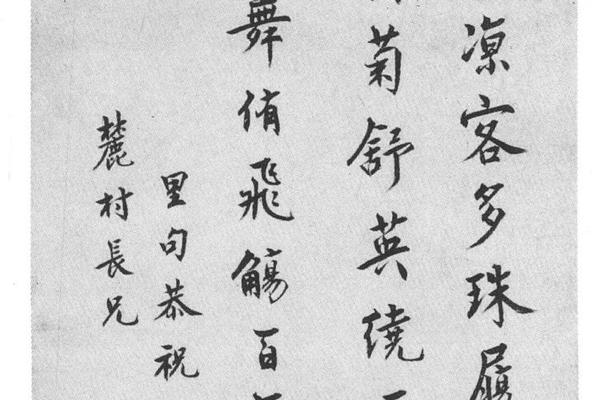 凉客多珠履
菊舒英繞
舞侑飛觴百
里句恭祝
麓村長兄